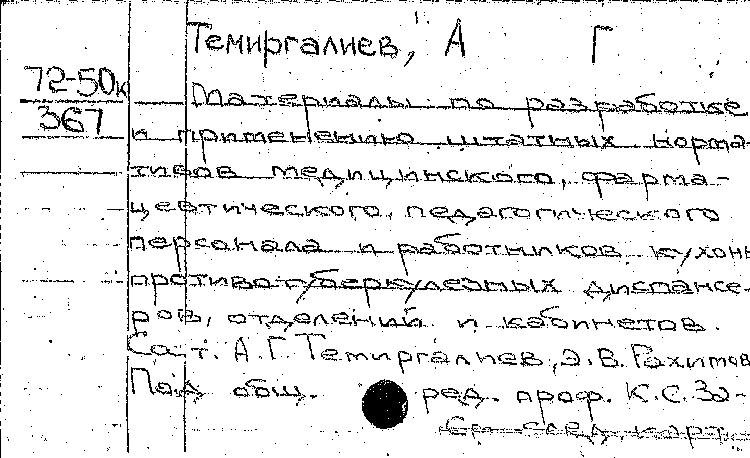 Темиргалиев, А Г
72-50к
367
Материалы по разработке
и применению штатных норма-
тивов медицинского, фарма-
цевтического, педагогического
персонала и работников кухонь
противотуберкулезных диспансе-
ров, отделений и кабинетов.
Сост. А.Г. Темиргалиев, Э.В. Рахимов
Под общ. ред. проф. К.С. За-
См след. карт.